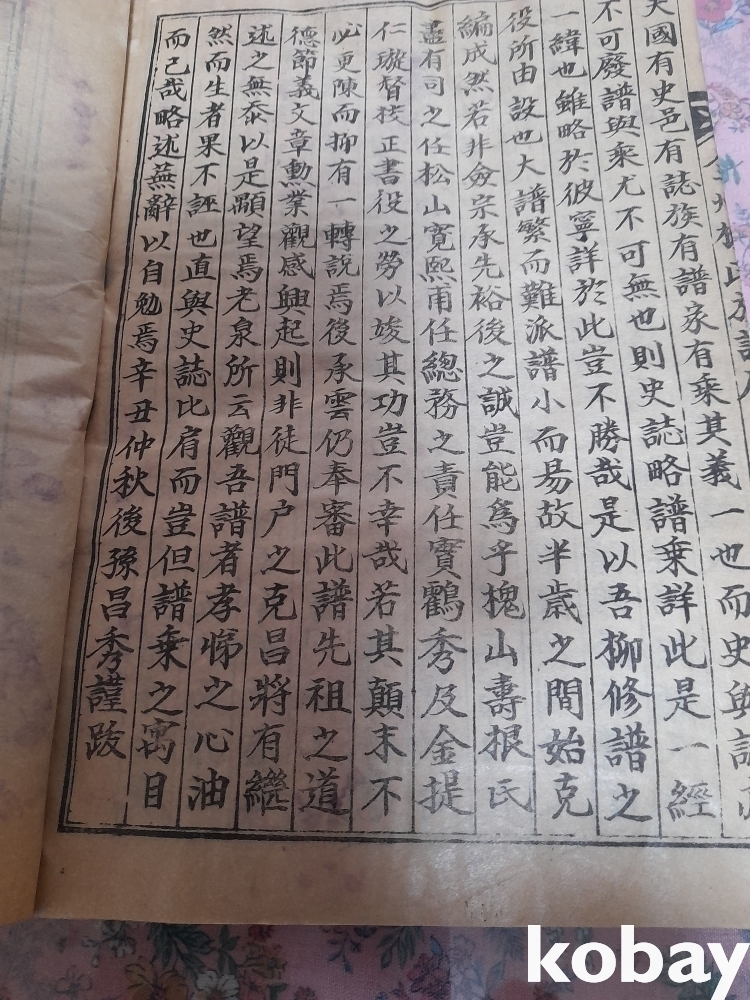 夫國有史邑有誌族有譜家有乘其義一也而史與誌
不可廢譜與乘尤不可無也則史誌略譜乘詳此是一經
一緯也雖略於彼寧詳於此豈不勝哉是以吾柳修譜之
役所由設也大譜繁而難派譜小而易故半歲之間始克
編成然若非僉宗承先裕後之誠豈能爲乎槐山壽根氏
盡有司之任松山寬熙甫任總務之責任寶鸖秀及金提
仁璇督校正書役之勞以竣其功豈不幸哉若其顛末不
必更陳而抑有一轉說焉後承雲仍奉審此譜先祖之道
德節義文章勳業觀感興起則非徒門户之克昌將有繼
述之無忝以是顒望焉老泉所云觀吾譜者孝悌之心油
然而生者果不誣也直與史誌比肩而豈但譜乘之寓目
而已哉略述蕪辭以自勉焉辛丑仲秋後孫昌秀謹跋
kobay